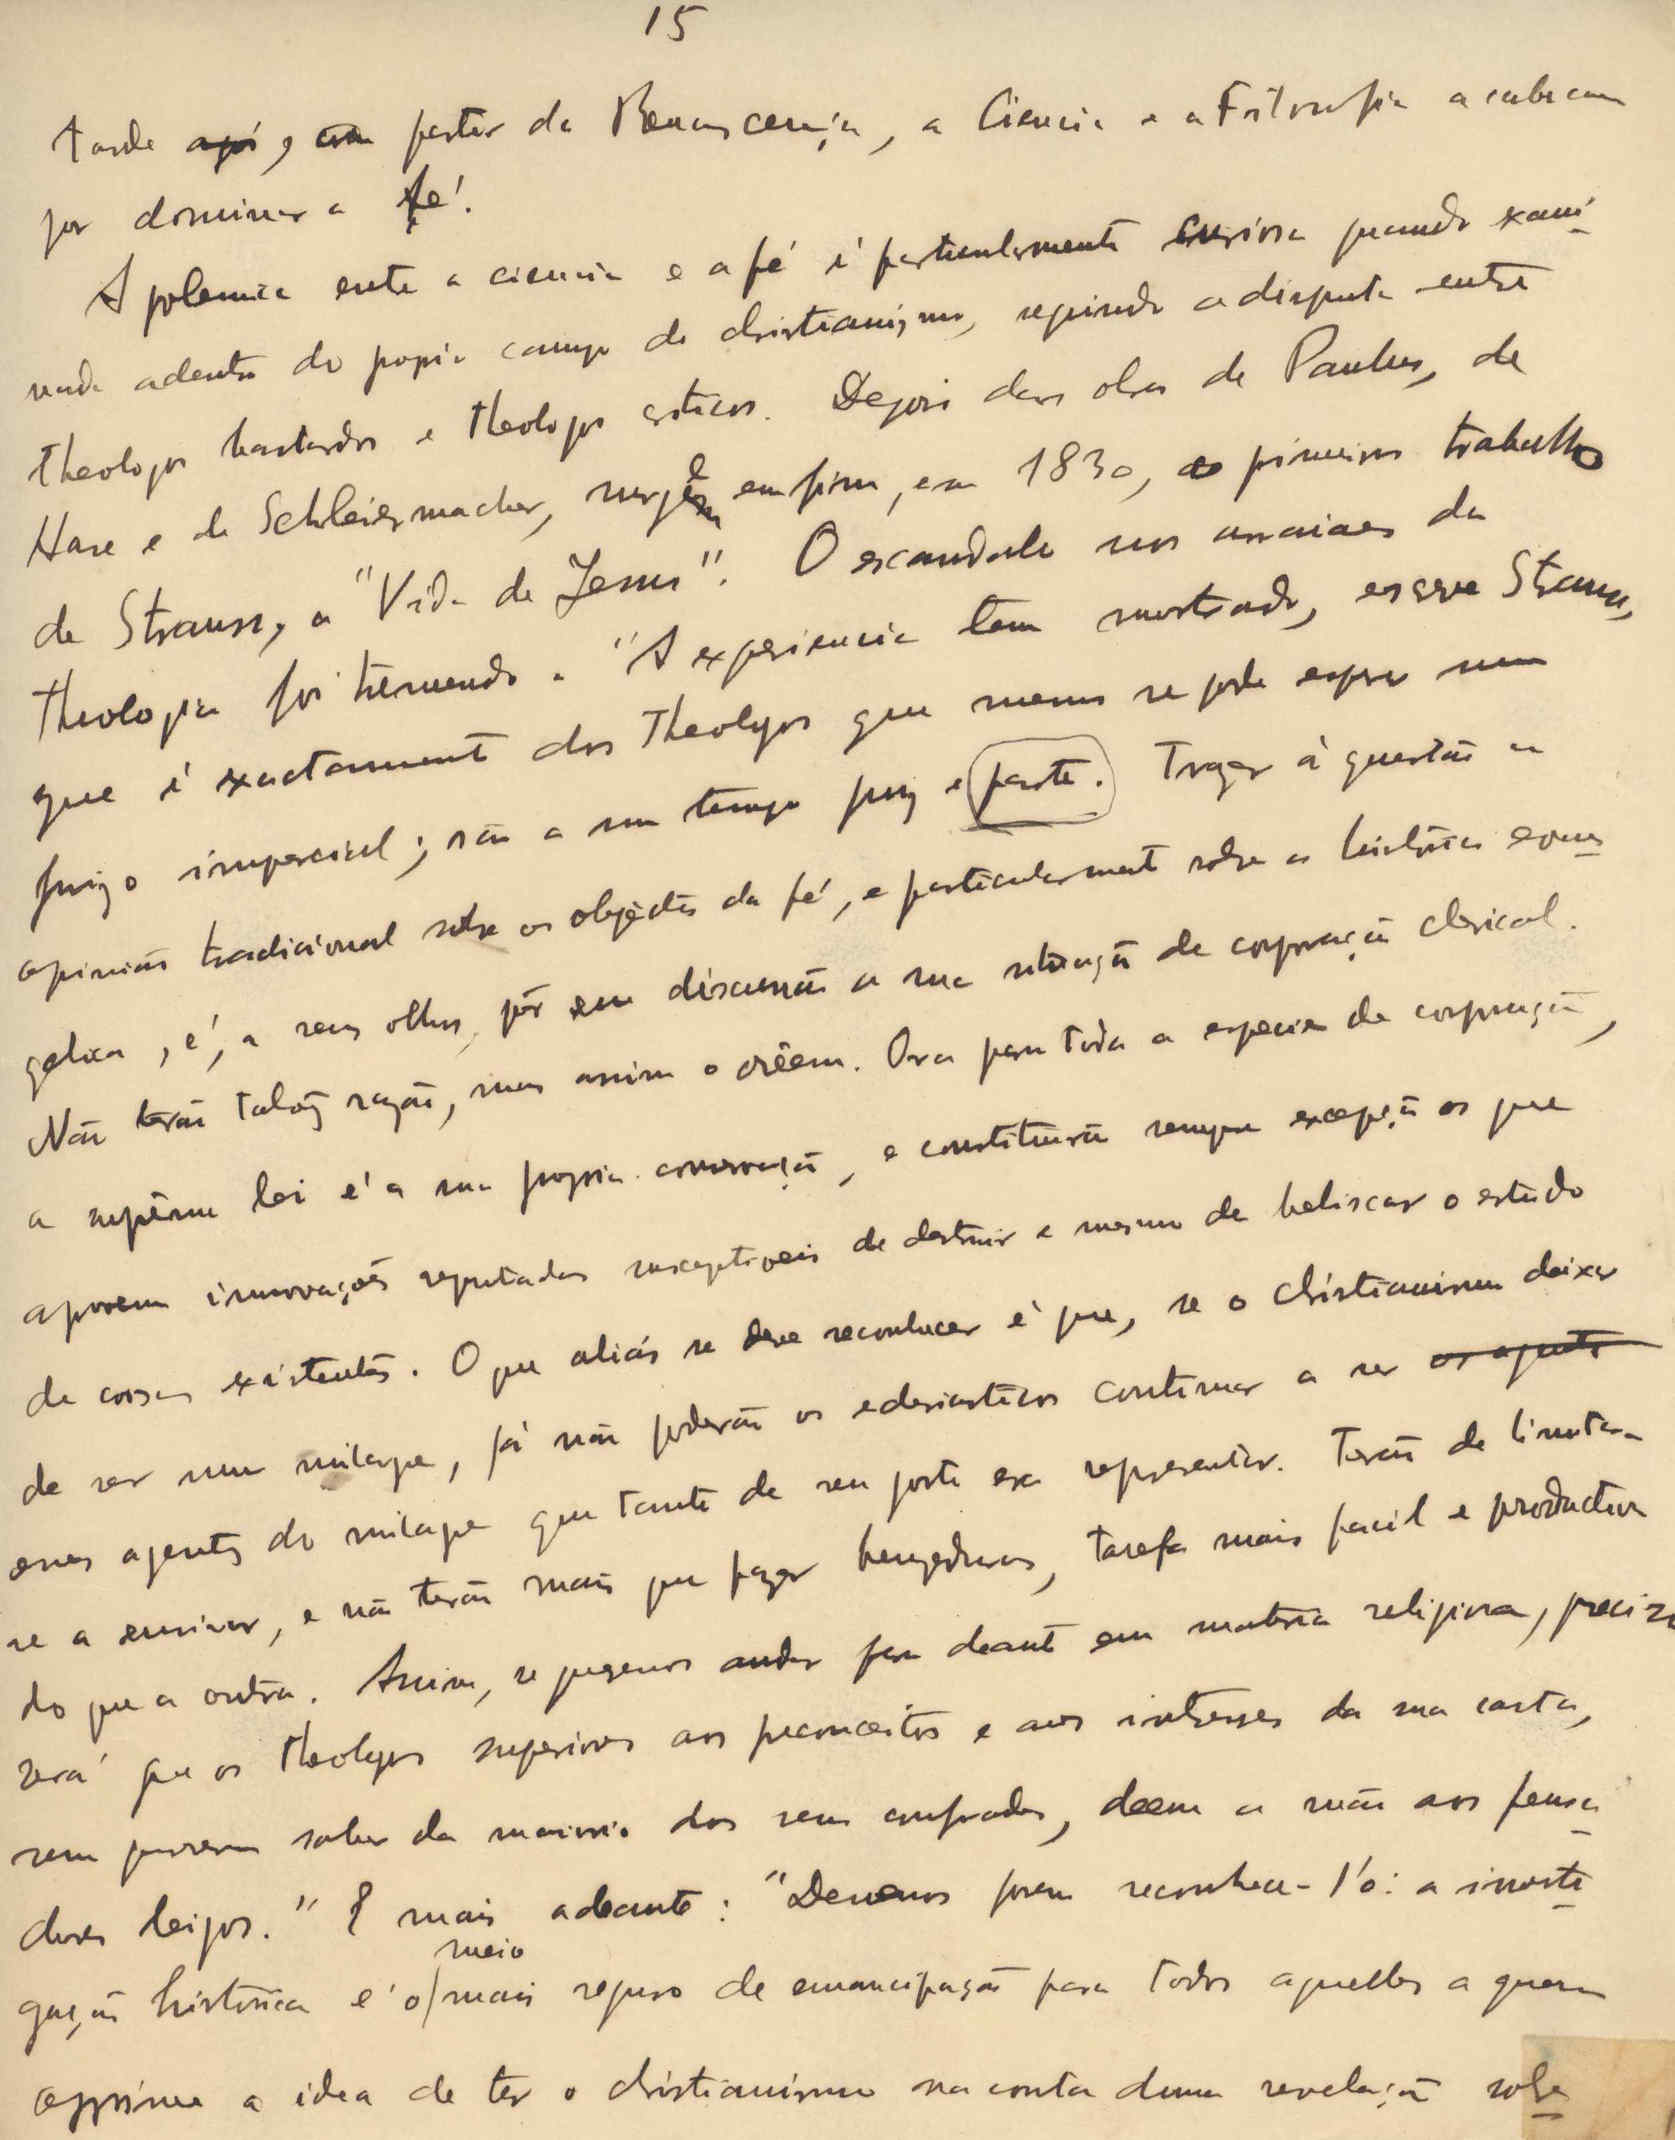 15
tarde após, a partir da Renascença, a Ciencia e a Filosofia acabaram
por dominar a fé.
A polemica entre a ciencia e a fé é particularmente curiosa quando exami
nada adentro do proprio campo do christianismo, seguindo a disputa entre
theologos bastardos e theologos criticos. Depois das obras de Paulus, de
Hase e de Schleiermacher, surge emfim, em 1830, o primeiro trabalho
de Strauss, a "Vida de Jesus". O escandalo nos arraiaes da
theologia foi tremendo. "A experiencia tem mostrado, escreve Strauss,
que é exactamente dos theologos que menos se pode esperar um
juizo imparcial; são a um tempo juiz e parte. Trazer á questão a
opinião tradicional sobre os objectos da fé, e particularmente sobre a historia evan
gelica, é, a seus olhos, pôr em discussão a sua situação de corporação clerical.
Não terão talvez razão, mas assim o crêem. Ora para toda a especie de corporação,
a suprema lei é a sua propria conservação, e constituirão sempre excepção os que
aprovem innovações reputadas susceptiveis de destruir e mesmo de beliscar o estado
de cousas existentes. O que aliás se deve reconhecer é que, se o christianismo deixar
de ser um milagre, já não poderão os eclesiasticos continuar a ser os agentes
esses agentes do milagre que tanto de seu gosto era representar. Terão de limitar-
se a ensinar, e não terão mais que fazer benzeduras, tarefa mais facil e productiva
do que a outra. Assim, se quizermos andar para deante em materia religiosa, preciso
será que os theologos superiores aos preconceitos e aos interesses da sua casta,
sem quererem saber da maioria dos seus confrades, deem a mão aos pensa
dores leigos." E mais adeante: "Devemos porem reconhece-l'o: a investi
gação historica é o meio mais seguro de emancipação para todos aquelles a quem
opprime a idea de ter o christianismo na conta duma revelação sobre